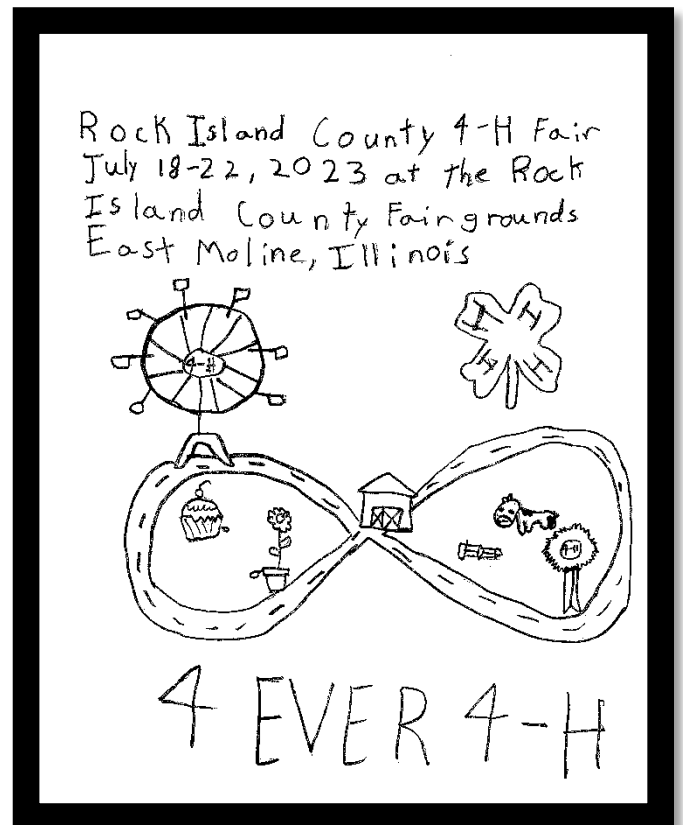 Rock Island County 4-H Fair
July 18-22, 2023 at the Rock
Island County Fairgrounds
East Moline, Illinois
4-H
H H
H H
4-H
4 EVER 4-H